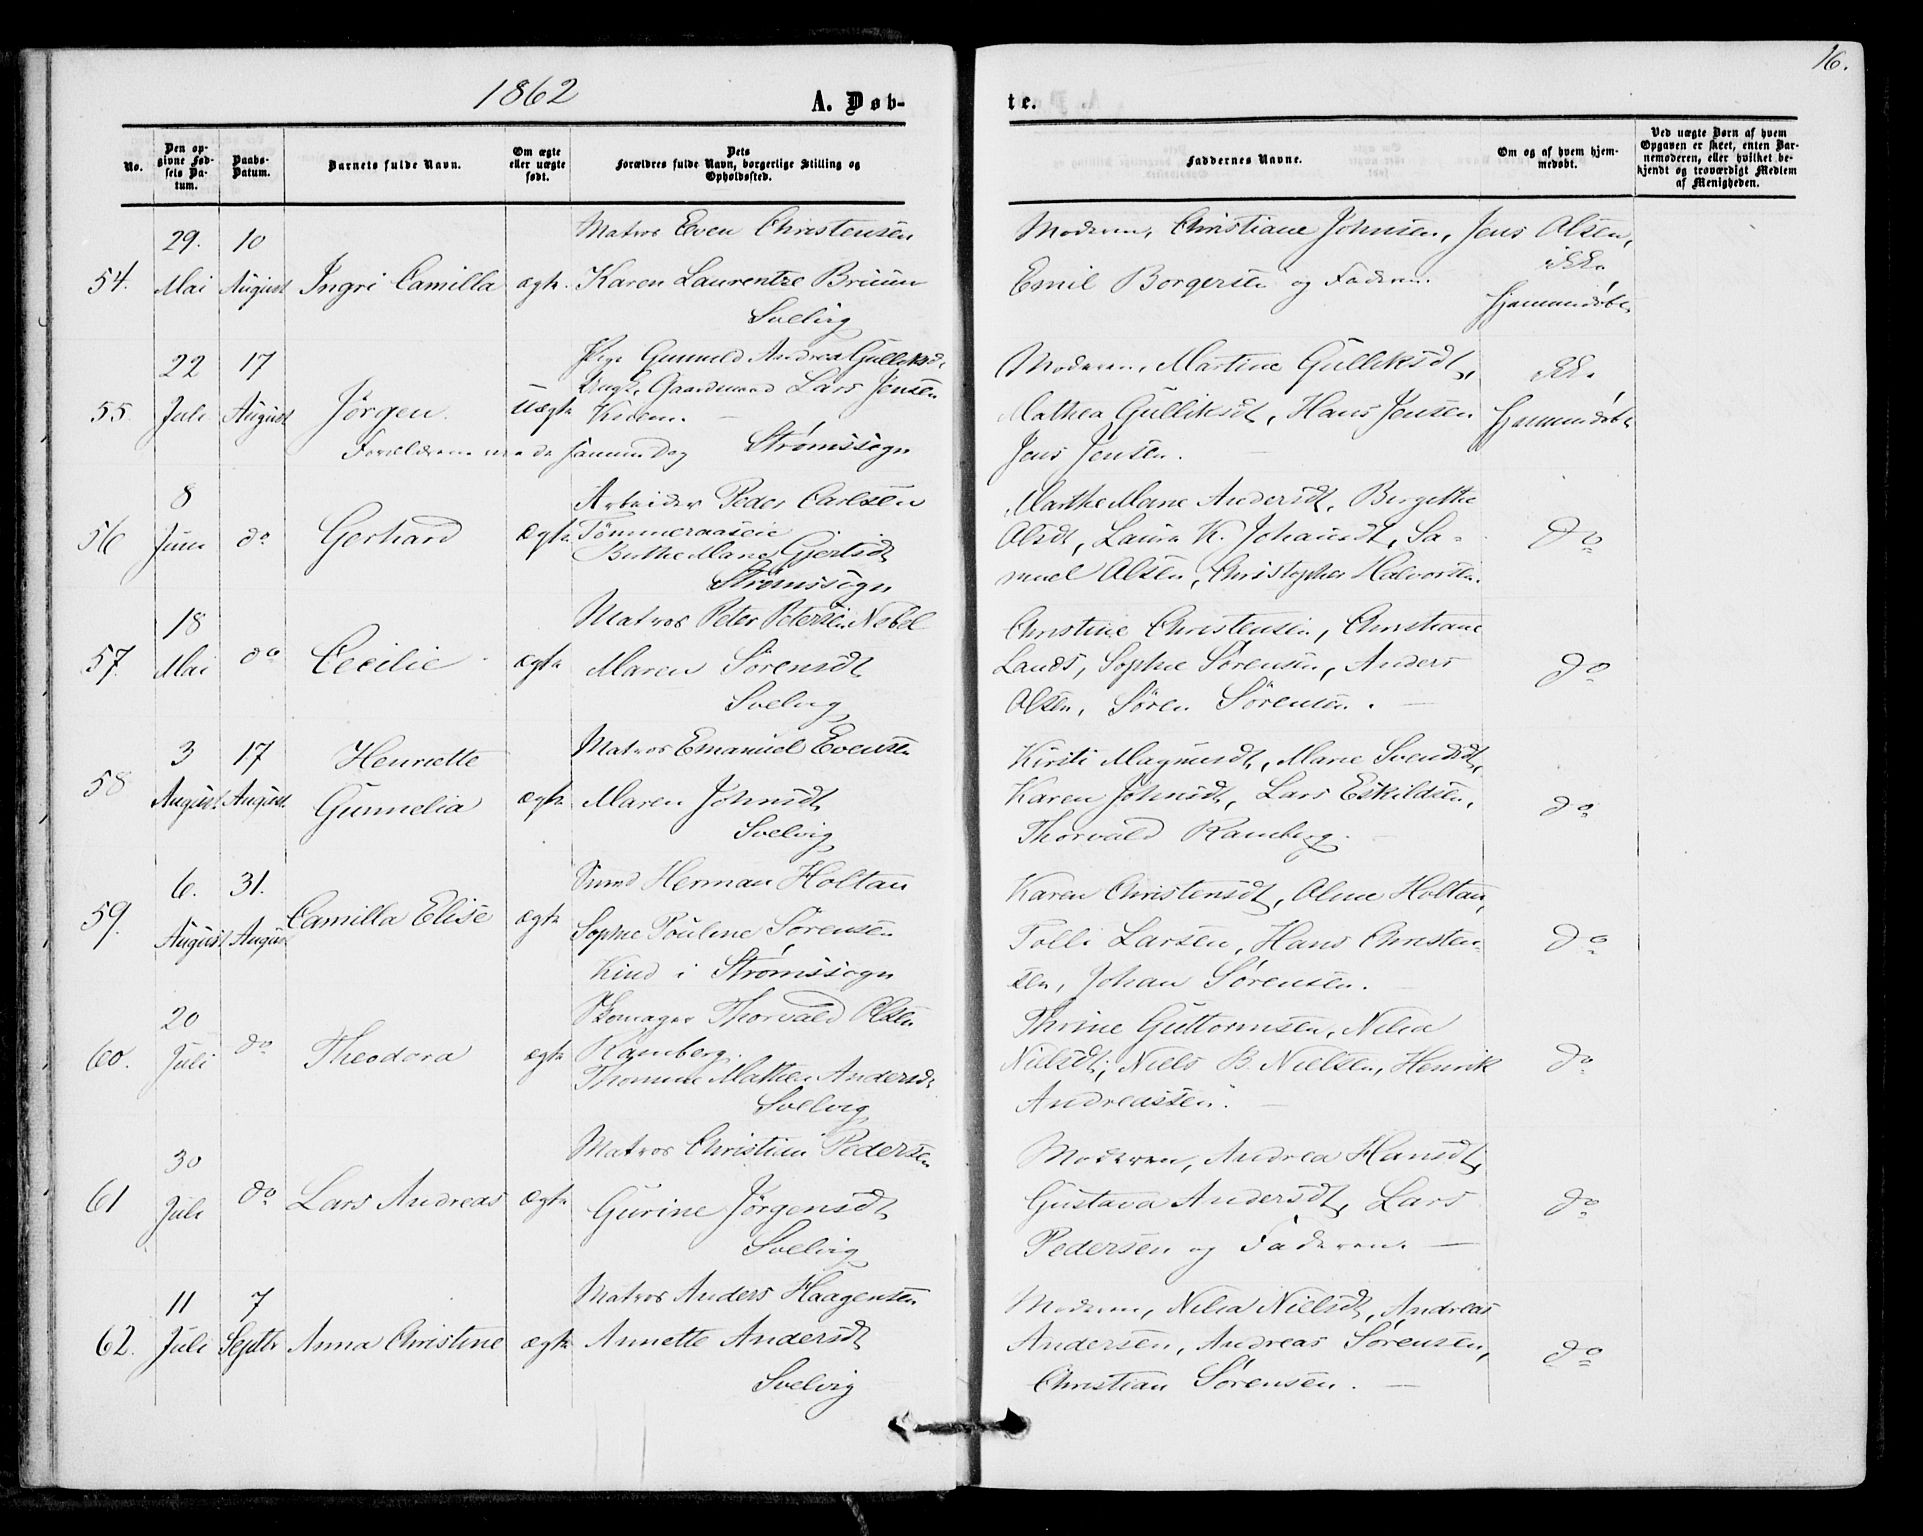 1862
A. Døb-
No.
Den op-
givne Fød-
sels Da-
tum.
Daabs-
Datum.
Barnets fulde Navn.
Om ægte
eller uægte
født.
Dets
Forældres fulde Navn, borgerlige Stilling og
Opholdssted.
54.
29.
Mai
10
August
Ingri Camilla
ægte.
Matros Even Christensen
Karen Laurentze Bruun
Svelvig
55.
22
Juli
17
August
Jørgen.
uægte
Pige Gunneld Andrea Gulliksdt.
Ungk. Gaardmand Lars Jensen
Knem. —
Forældrene viede samme Dag Strømssogn
56
8
Juni
do
Gerhard
ægte
Arbeider Peder Carlsen
Tømmeraaseie
Berthe Marie Gjertsdt
Strømssogn
57.
18
Mai
do
Cecilie
ægte
Matros Peter Petersen Nebel
Maren Sørensdt
Svelvig
58
3
August.
17
August.
Henriette
Gunnelia
ægte
Matros Emanuel Evensen
Maren Johnsdt
Svelvig
59.
6.
August
31.
August
Camilla Elise
ægte
Smed Herman Holtan
Sophie Pouline Sørensen
Kind i Strømssogn
60.
20
Juli
do
Theodora
ægte
Skomager Thorvald Olsen
Ramberg.
Thomine Mathea Andersdt
Svelvig
61
30
Juli
do
Lars Andreas
ægte
Matros Christian Pedersen
Gurine Jørgensdt
Svelvig
62.
11
Juli
7
Septbr
Anna Christine
ægte
Matros Anders Haagensen
Annette Andersdt
Svelvig
16.
te.
Faddernes Navne.
Om og af hvem hjem-
medøbt.
Ved uægte Børn af hvem
Opgaven er skeet, enten Bar-
nemoderen, eller hvilket be-
kjendt og troværdigt Medlem
af Menigheden.
Moderen, Christiane Johnsen, Jens Olsen,
Emil Borgersen og Faderen.
ikke
hjemmedøbt
Moderen, Martine Gulliksdt,
Mathea Gulliksdt, Hans Jensen
Jens Jensen. —
ikke
hjemmedøbt
Marthe Marie Andersdt, Birgitte
Olsdt, Laura K. Johansdt, Sa-
muel Olsen, Christopher Halvorsen.
do
Christine Christensen, Christiane
Lands, Sophie Sørensen, Anders
Olsen, Søren Sørensen. —
do
Kirsti Magnusdt, Marie Svendsdt,
Karen Johnsdt, Lars Eskildsen,
Thorvald Ramberg. —
do
Karen Christensdt, Oline Holtan,
Tolli Larsen, Hans Christen-
sen, Johan Sørensen. —
do
Thrine Guttormsen, Nilia
Nielsdt, Niels B. Nielsen, Henrik
Andreassen. —
do
Moderen, Andrea Hansdt,
Gustava Andersdt, Lars
Pedersen og Faderen. —
do
Moderen, Nilia Nielsdt, Andreas
Andersen, Andreas Sørensen,
Christian Sørensen. —
do